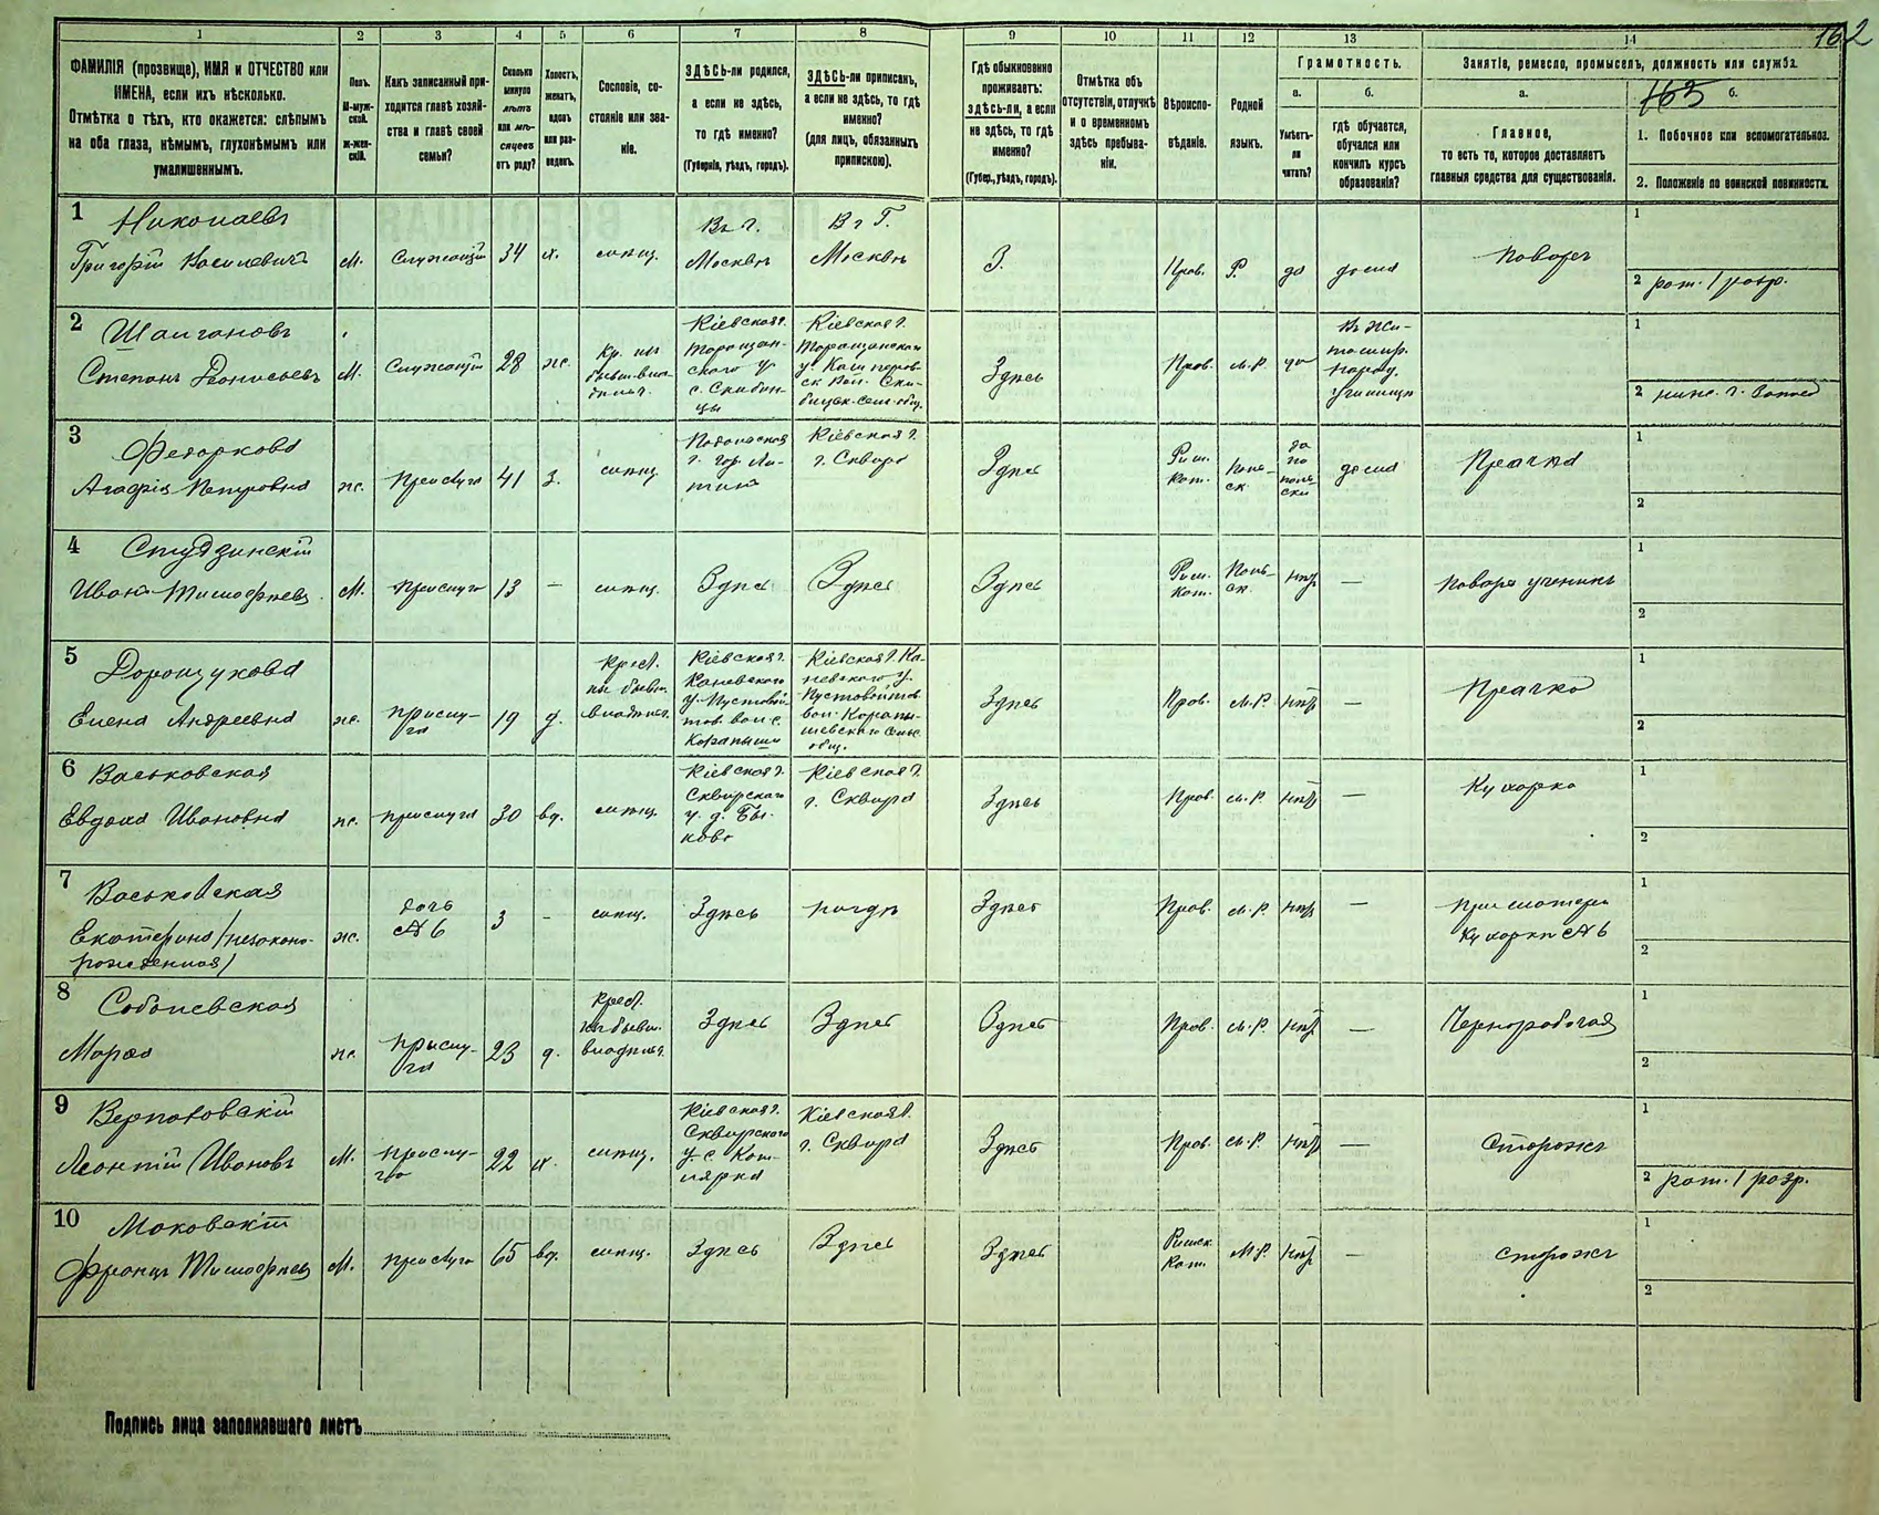 162
1 2 3 4 5 6 7 8 9 10 11 12 13 14
ФАМИЛІЯ (прозвище), ИМЯ и ОТЧЕСТВО или
ИМЕНА, если ихъ нѣсколько.
Отмѣтка о тѣхъ, кто окажется: слѣпымъ
на оба глаза, нѣмымъ, глухонѣмымъ или
умалишеннымъ.
Полъ.
М-муж-
ской.
Ж-жен-
скій.
Какъ записанный при-
ходится главѣ хозяй-
ства и главѣ своей
семьи?
Сколько
минуло
лѣтъ
или мѣ-
сяцевъ
отъ роду?
Холостъ,
женатъ,
вдовъ
или раз-
веденъ.
Сословіе, со-
стояніе или зва-
ніе.
ЗДѢСЬ-ли родился,
а если не здѣсь,
то гдѣ именно?
(Губернія, уѣздъ, городъ).
ЗДѢСЬ-ли приписанъ,
а если не здѣсь, то гдѣ
именно?
(для лицъ, обязанныхъ
припискою).
Гдѣ обыкновенно
проживаетъ:
здѣсь-ли, а если
не здѣсь, то гдѣ
именно?
(Губер., уѣздъ, городъ).
Отмѣтка объ
отсутствіи, отлучкѣ
и о временномъ
здѣсь пребыва-
ніи.
Вѣроиспо-
вѣданіе.
Родной
языкъ.
Грамотность.
а.
Умѣетъ-
ли
читать?
б.
гдѣ обучается,
обучался или
кончилъ курсъ
образованія?
Занятіе, ремесло, промыселъ, должность или служба.
а.
Главное,
то есть то, которое доставляетъ
главныя средства для существованія.
163
б.
1. Побочное или вспомогательное.
2. Положеніе по воинской повинности.
1 Николаевъ
Григорій Василевичъ
М.
Служащій
34
х.
мѣщ.
Въ г.
Москвѣ
Въ Г.
Москвѣ
З.
Прав.
Р.
да
дома
Поваръ
1
2 рат. 1 разр.
2
Степанъ Діонисьевъ
М.
Служащій
28
ж.
Кр. изъ
бывш. вла-
дѣльч.
Кіевская г.
Таращан-
скаго у
с. Скибин-
цы
Кіевская г.
Таращанскаго
Здѣсь
Прав.
М.Р.
да
Народ.
училищѣ
1
2
3 Федоркова
Агафія Петровна
ж.
Прислуга
41
З.
мѣщ.
Подольская
г. гор. Ли-
тинъ
Кіевская г.
г. Сквира
Здѣсь
Рим.
Кат.
Поль-
ск.
да
по
поль-
ски
дома
Прачка
1
2
4 Студзинскій
Иванъ Тимофѣевъ
М.
прислуга
13
—
мѣщ.
Здѣсь
Здѣсь
Здѣсь
Рим.
Кат.
Поль-
ск.
нѣтъ
—
Повара ученикъ
1
2
5 Дорощукова
Елена Андреевна
ж.
прислу-
га
19
д.
Крест.
изъ бывш.
владѣльч.
Кіевская г.
Каневскаго
у. Пустовой-
тов. вол. с.
Карапыши
Кіевская г. Ка-
невскаго у.
Пустовойтов.
вол. Карапы-
шевскаго сельс.
общ.
Здѣсь
Прав.
М.Р.
нѣтъ
—
Прачка
1
2
6 Васьковская
Евдокія Ивановна
ж.
прислуга
30
вд.
мѣщ.
Кіевская г.
Сквирскаго
у. д. Бы-
ково
Кіевская г.
г. Сквира
Здѣсь
Прав.
М.Р.
нѣтъ
—
Кухарка
1
2
7 Васьковская
Екатерина (незаконо-
рожденная)
ж.
дочь
№ 6
3
-
мѣщ.
Здѣсь
нигдѣ
Здѣсь
Прав.
М.Р.
нѣтъ
—
При матери
Кухаркѣ № 6
1
2
8 Соболевская
Марья
ж.
прислу-
га
23
д.
Крест.
изъ бывш.
владѣльч.
Здѣсь
Здѣсь
Здѣсь
Прав.
М.Р.
нѣтъ
—
Чернорабочая
1
2
9
Леонтій Ивановъ
М.
прислу-
га
22
х.
мѣщ.
Кіевская г.
Сквирскаго
у. с. Кот-
лярка
Кіевская г.
г. Сквира
Здѣсь
Прав.
М.Р.
нѣтъ
—
Сторожъ
1
2 рат. 1 разр.
10 Маковскій
Францъ Тимофѣевъ
М.
прислуга
65
вд.
мѣщ.
Здѣсь
Здѣсь
Здѣсь
Римск.
Кат.
М.Р.
нѣтъ
—
сторожъ
1
2
Подпись лица заполнявшаго листъ